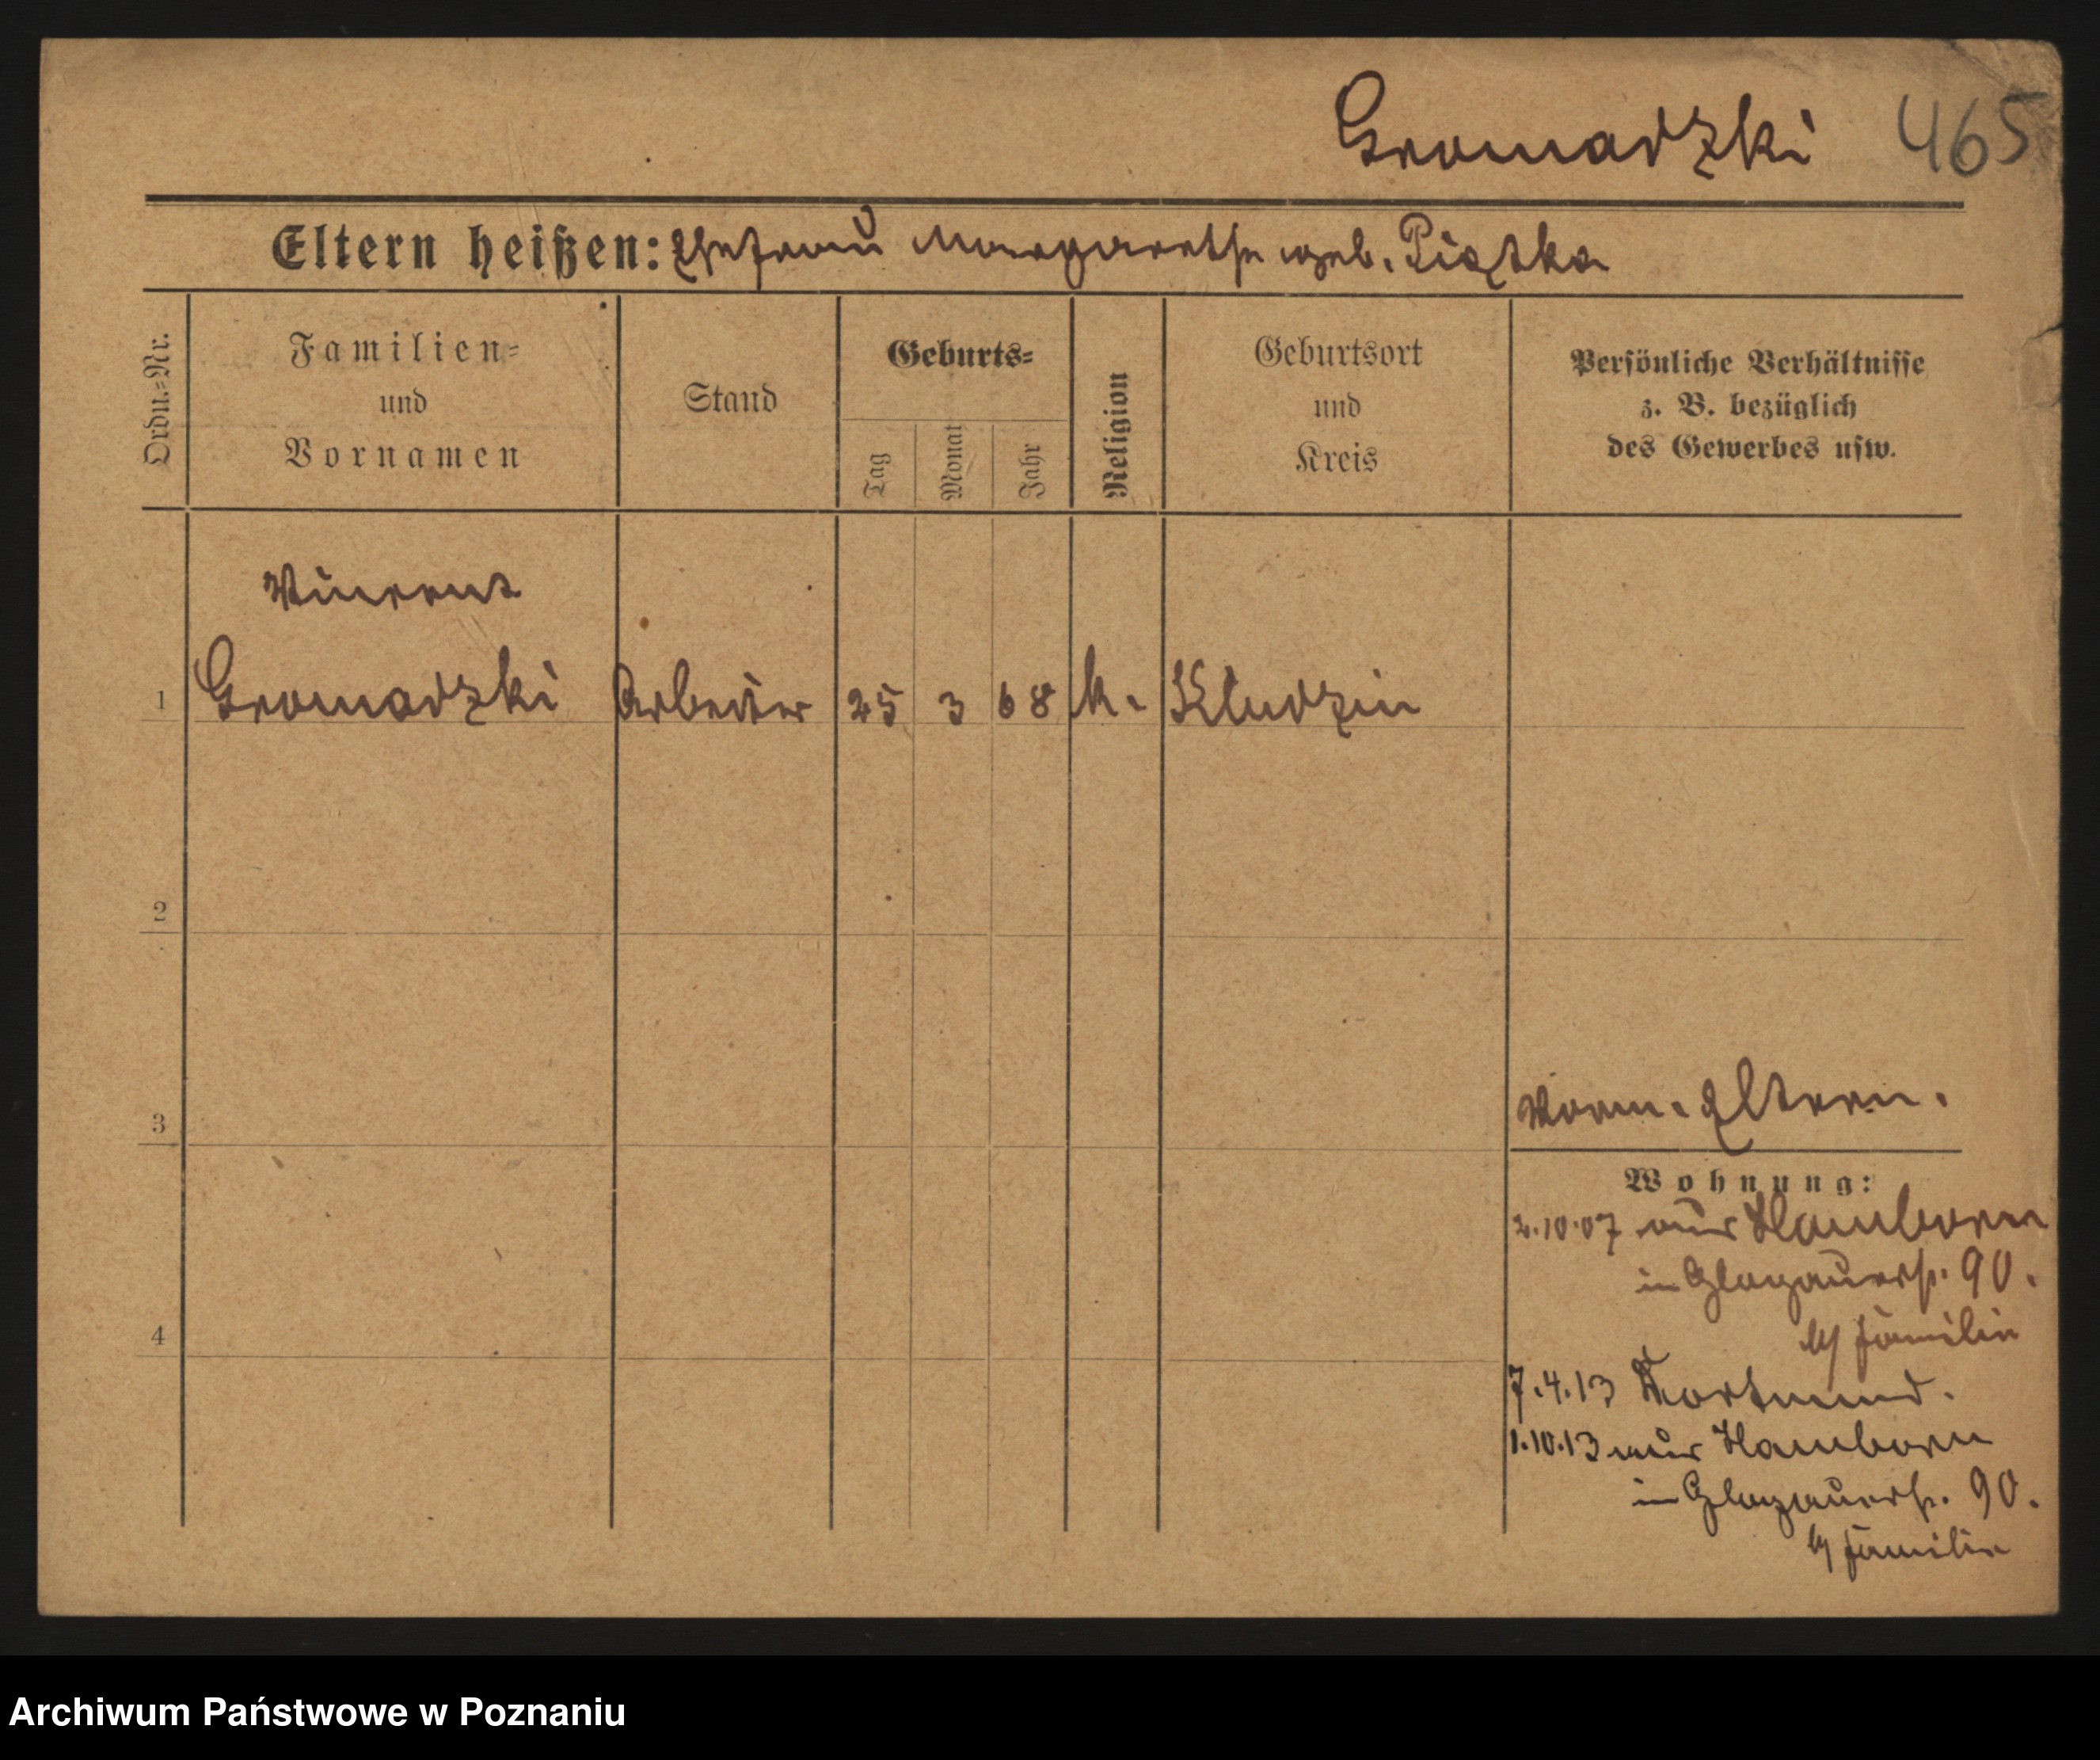 Gromadzki 465
Eltern heißen: Margarethe geb. Piątka
Ordn.=Nr.
Familien=
und
Vornamen
Stand
Geburts=
Tag
Monat
Jahr
Religion
Geburtsort
und
Kreis
Persönliche Verhältnisse
z. B. bezüglich
des Gewerbes usw.
Vincent
1 Gromadzki Arbeiter 25 3 68 k. Kludzin
2
3
4
Eltern.
Wohnung:
2.10.07 aus Hamborn
in Glogauerstr. 90.
Familie
7.4.13 Dortmund.
1.10.13 aus Hamborn
in Glogauerstr. 90.
Familie
Archiwum Państwowe w Poznaniu